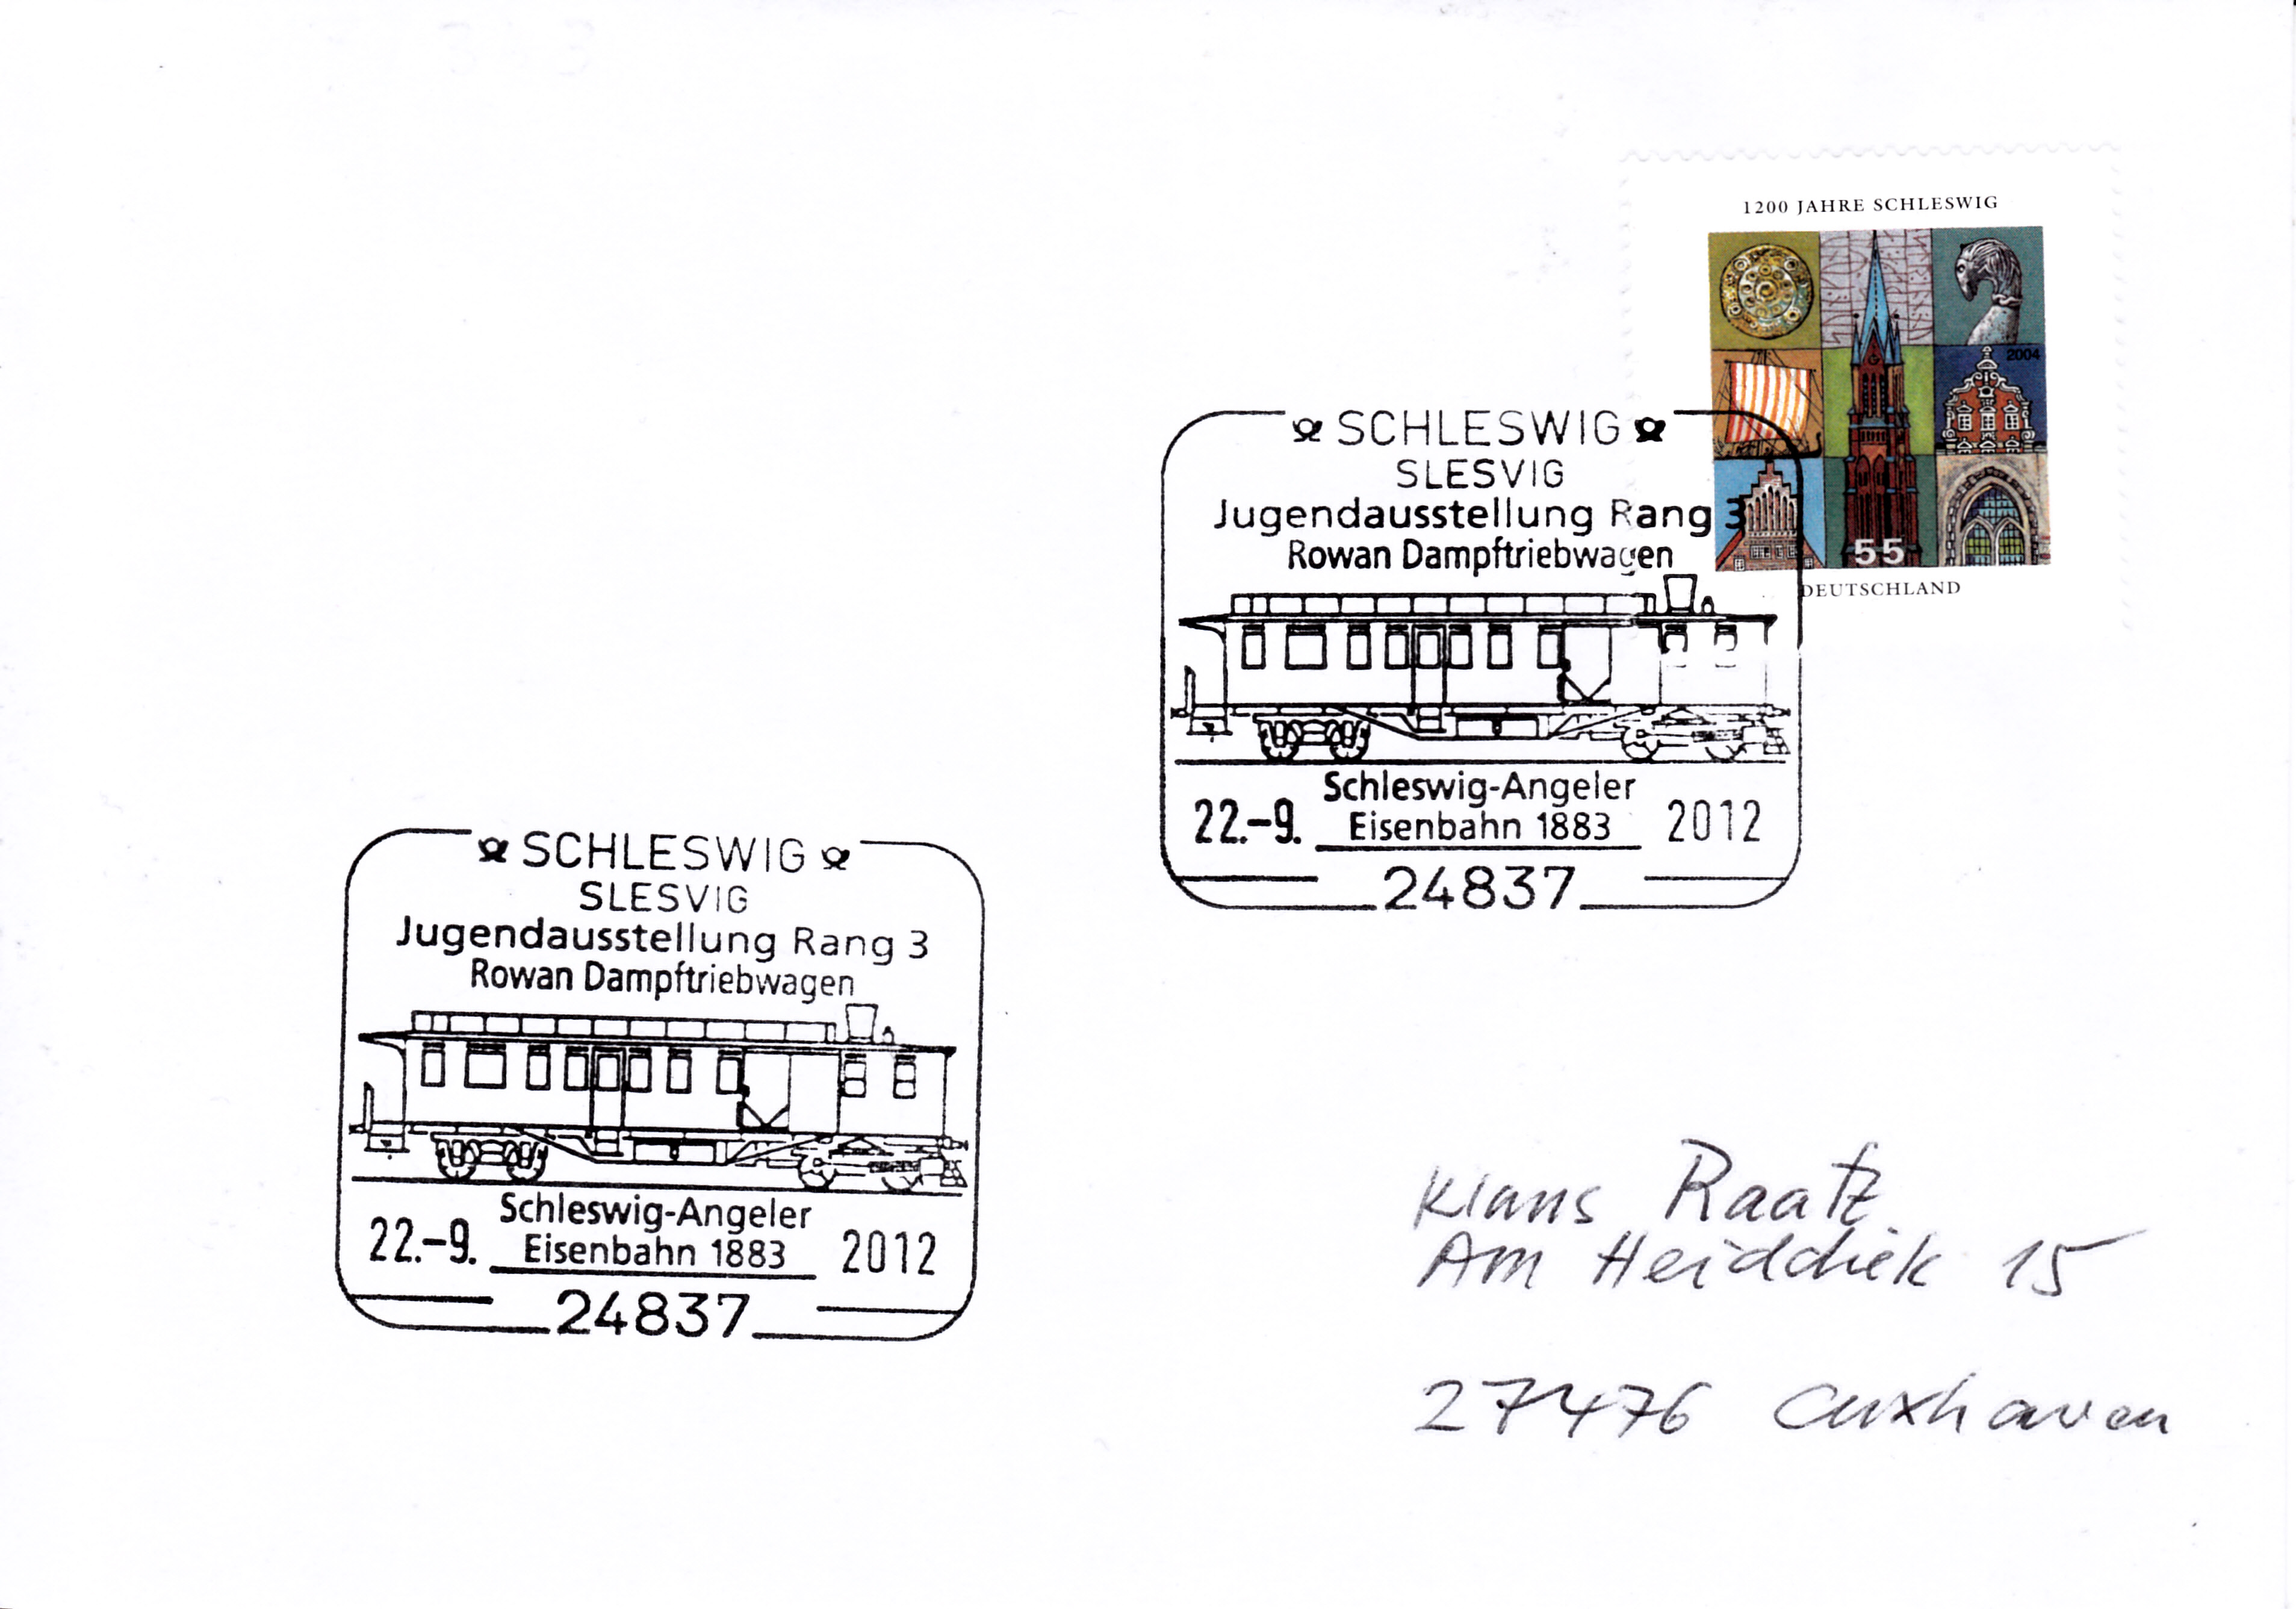 1200 JAHRE SCHLESWIG
2004
55
DEUTSCHLAND
SCHLESWIG
SLESVIG
Jugendausstellung Rang 3
Rowan Dampftriebwagen
Schleswig-Angeler
22.-9. Eisenbahn 1883 2012
24837
SCHLESWIG
SLESVIG
Jugendausstellung Rang 3
Rowan Dampftriebwagen
Schleswig-Angeler
22.-9. Eisenbahn 1883 2012
24837
Klaus Raatz
Am Heiddiek 15
27476 Cuxhaven